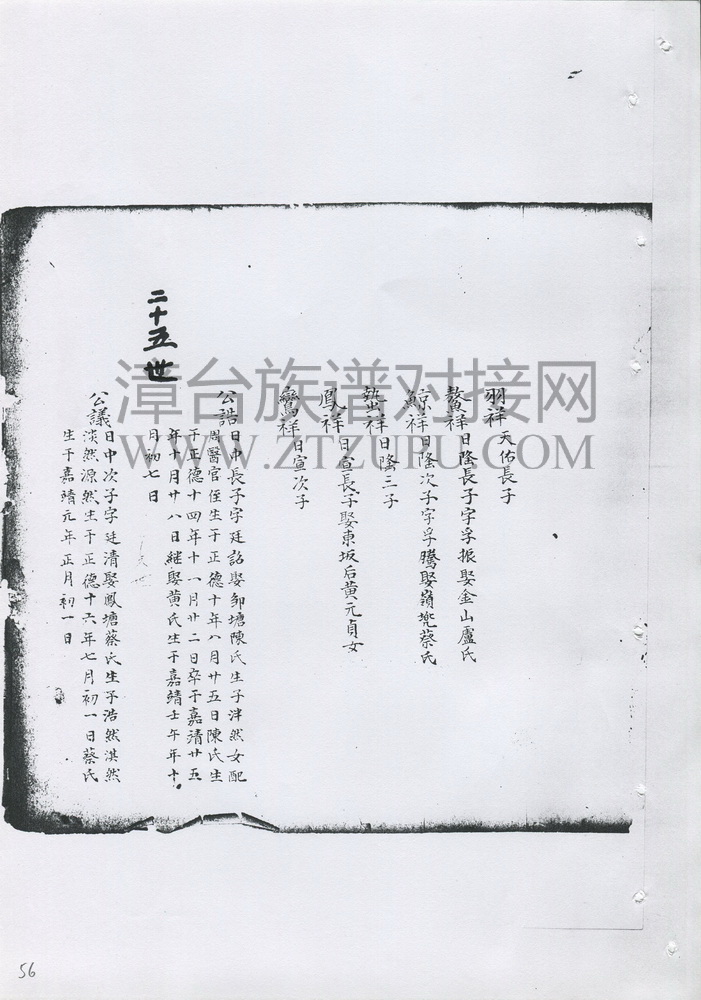 羽祥天佑長子
鰲祥日隆長子字孚振娶金山盧氏
鯨祥日隆次子字孚騰娶嶺兜蔡氏
祥日隆三子
鳳祥日宣長子娶東坂后黄元貞女
鸞祥日宣次子
二十五世
公誥日中長子字廷詔娶邹塘陳氏生子泮然女配
周醫官侄生于正德十年八月廿五日陳氏生
于正德十四年十一月廿二日卒于嘉靖廿五
年十月廿八日继娶黄氏生于嘉靖壬午年十
月初七日
公議日中次子字廷清娶鳳塘蔡氏生子浩然淇然
淡然源然生于正德十六年七月初一日蔡氏
生于嘉靖元年正月初一日
漳台族谱对接网
WWW.ZTZUPU.COM
56